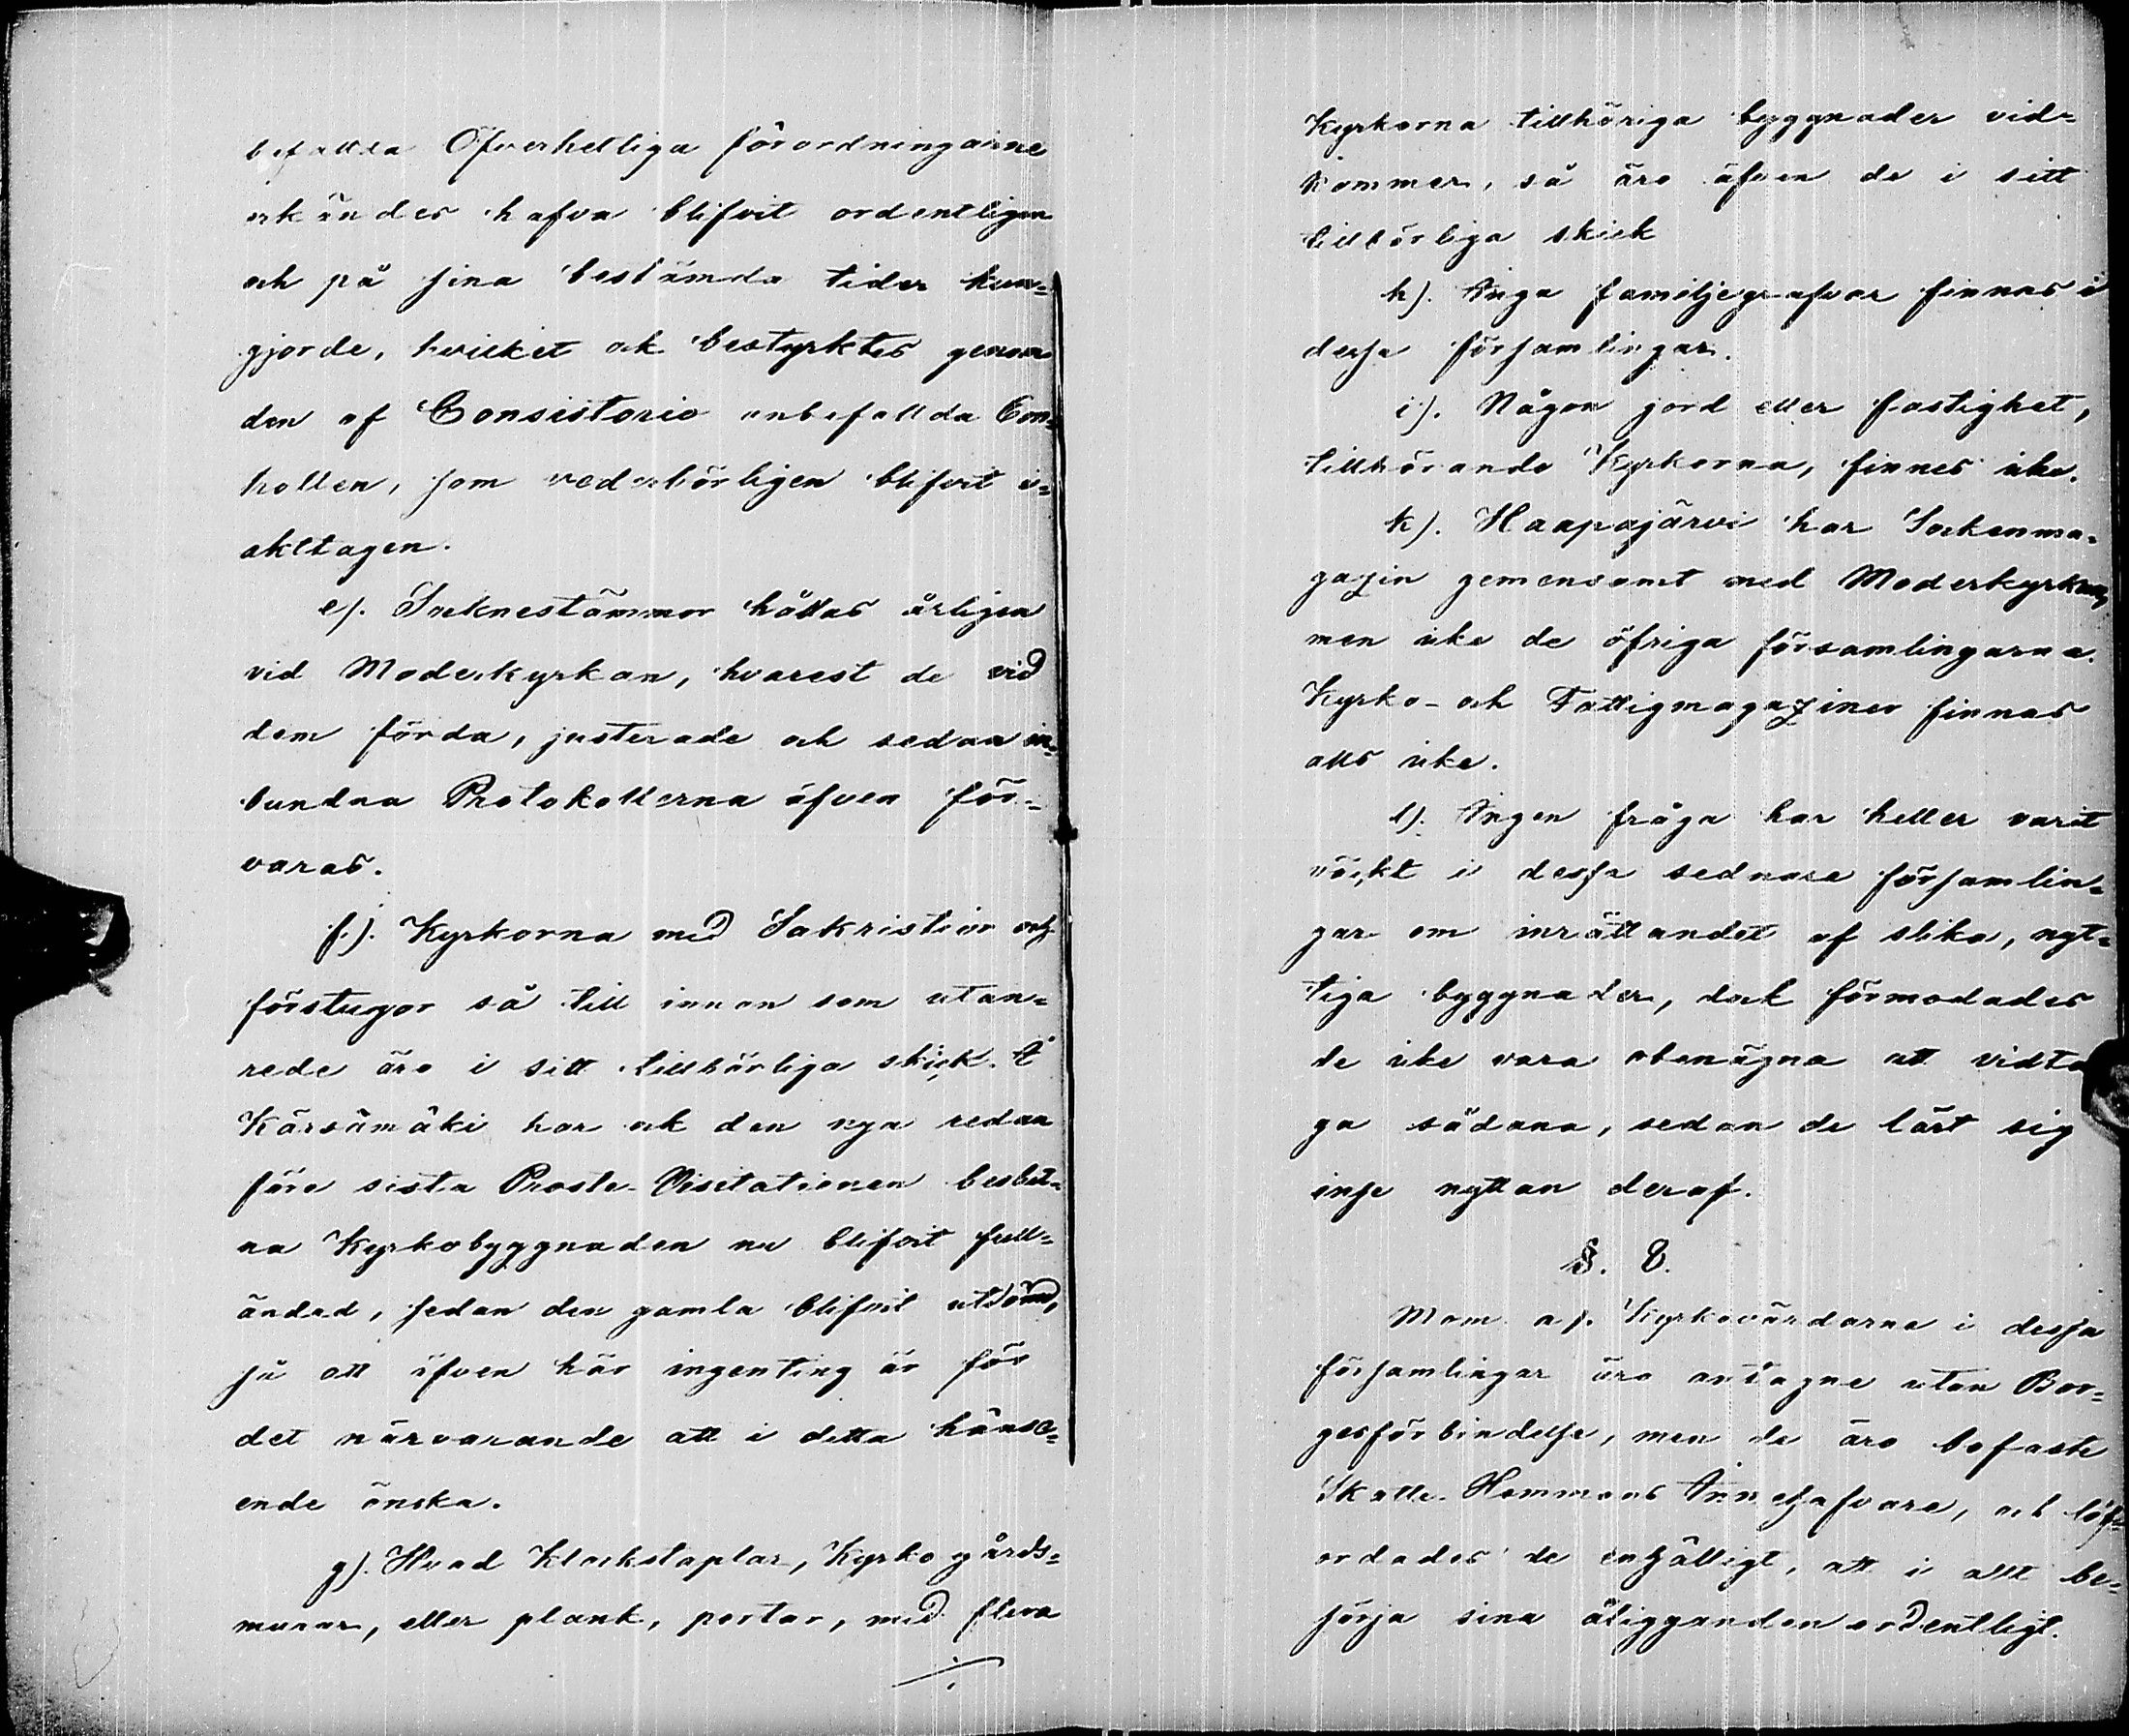 befallda Öfverhetliga förordningarne
erkändes hafva blifvit ordentligen
och på sina bestämda tider kun-
gjorde, hvilket ock bestyrktes genom
den af Consistorio anbefallda Con-
trollen, som vederbörligen blifvit i-
akttagen.
e). Socknestämmor hållas årligen
vid Moderkyrkan, hvarest de vid
dem förda, justerade och sedan in-
bundna Protokollerna äfven för-
varas.
f). Kyrkorna med Sakristior och
förstugor så till innan som utan-
rede äro i sitt tillbörliga skick. I
Kärsämäki har ock den nya redan
före sista Proste-Visitationen beslut-
na Kyrkobyggnaden nu blifvit full-
ändad, sedan den gamla blifvit utdömd,
så att äfven här ingenting är för
det närvarande att i detta hänse-
ende önska.
g). Hvad Klockstaplar, Kyrkogårds-
murar, eller plank, portar, med flera
Kyrkorna tillhöriga byggnader vid-
kommer, så äro äfven de i sitt
tillbörliga skick
h). Inga familjegrafvar finnas i
dessa församlingar.
i). Någon jord eller fastighet,
tillhörande Kyrkorna, finnes icke.
k). Haapajärvi har Sockenma-
gazin gemensamt med Moderkyrkan,
men icke de öfriga församlingarna.
Kyrko- och Fattigmagaziner finnas
alls icke.
l). Ingen fråga har heller varit
väckt i dessa sednare församlin-
gar om inrättandet af slika, nyt-
tiga byggnader, dock förmodades
de icke vara obenägna att vidta-
ga sådana, sedan de lärt sig
inse nyttan deraf.
§. 8.
Mom. a). Kyrkovärdarne i dessa
församlingar äro antagne utan Bor-
gesförbindelse, men de äro bofaste
Skatte-Hemmans Innehafvare, och löf-
ordades de enhälligt, att i allt be-
sörja sina åligganden ordentligt.